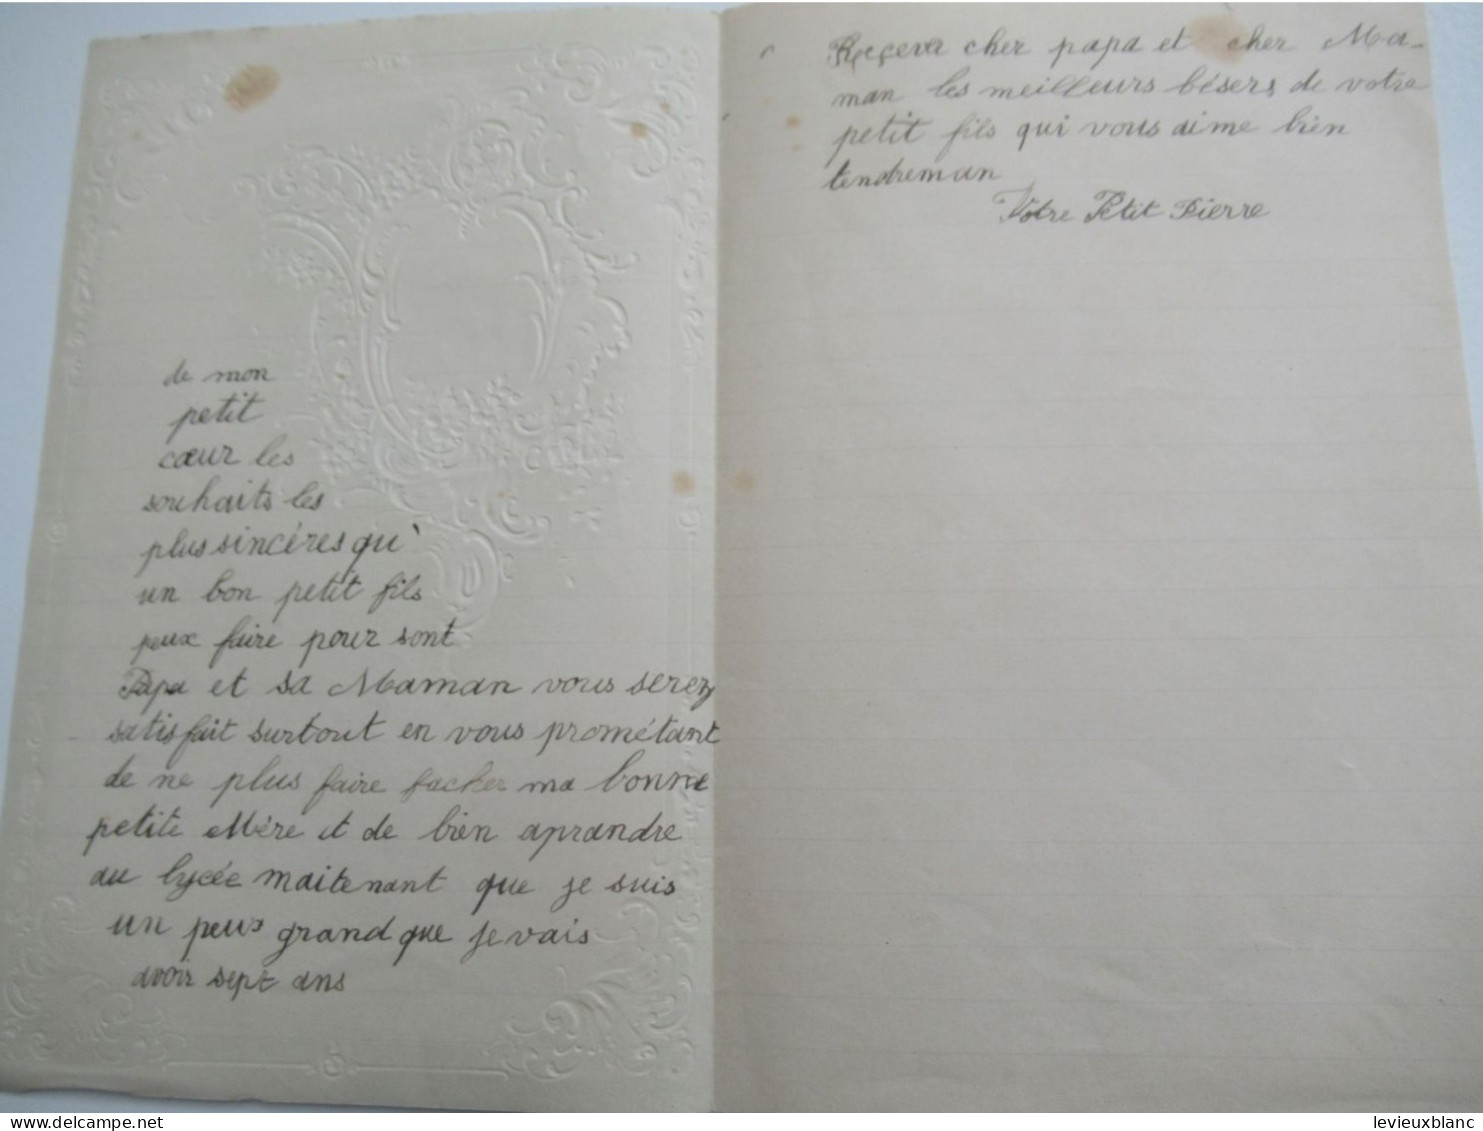 de mon
petit
cœur les
souhaits les
plus sincéres qu'
un bon petit fils
peux faire pour sont
Papa et sa Maman vous serez
satisfait surtout en vous prométant
de ne plus faire facher ma bonne
petite Mére et de bien aprandre
au lycée maitenant que je suis
un peux grand que je vais
avoir sept ans
Reçeva cher papa et cher Ma-
man les meilleurs bésers de votre
petit fils qui vous aime bien
tendreman
Votre Petit Pierre
levieuxblanc